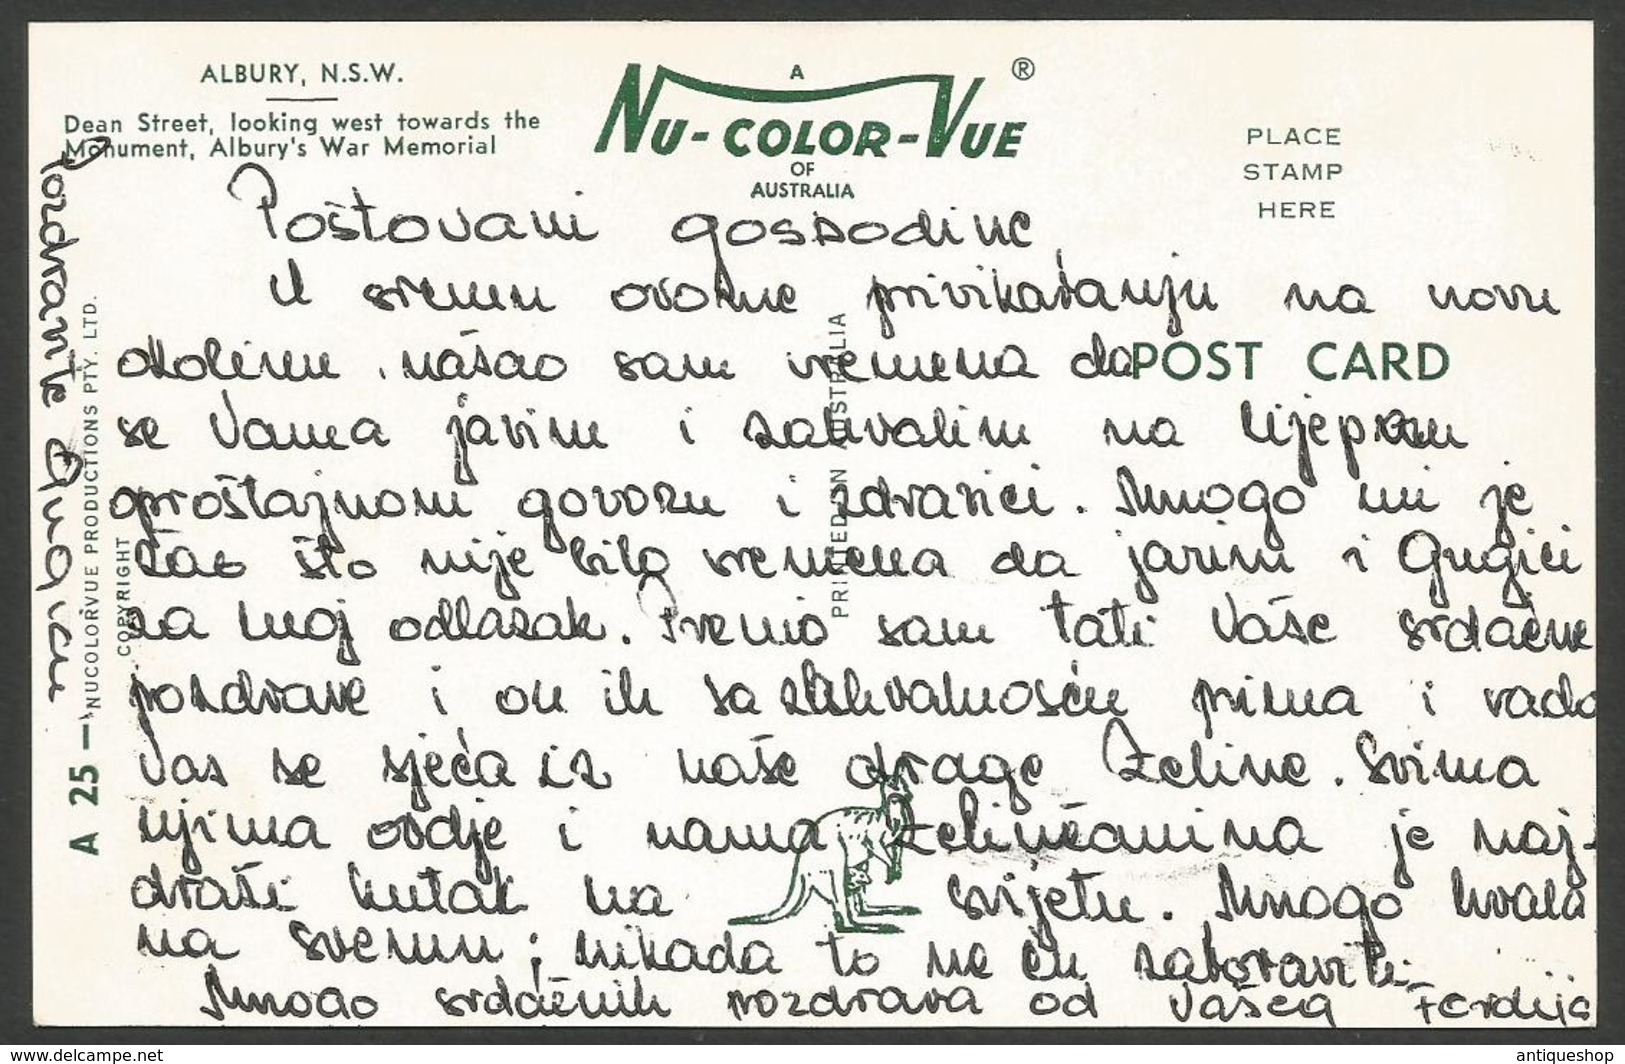 ALBURY, N.S.W.
Dean Street, looking west towards the
Monument, Albury's War Memorial
A
NU-COLOR-VUE ®
OF
AUSTRALIA
PLACE
STAMP
HERE
POST CARD
PRINTED IN AUSTRALIA
A 25 — NUCOLORVUE PRODUCTIONS PTY. LTD.
COPYRIGHT
Poštovani gospodine
U svemu ovome privikavanju na novu
okolinu, našao sam vremena da
se Vama javim i zahvalim na lijepom
oproštajnom govoru i zdravici. Mnogo mi je
žao što nije bilo vremena da javim i Gugici
za moj odlazak. Prenio sam tati Vaše srdačne
pozdrave i on ih sa zahvalnošću prima i rado
Vas se sjeća iz naše drage Zeline. Svima
njima ovdje i nama Zelinčanima je naj-
draži kutak na svijetu. Mnogo hvala
na svemu; nikada to ne ću zaboraviti.
Mnogo srdačnih pozdrava od Vašeg Ferdija
Pozdravite
www.delcampe.net
antiqueshop